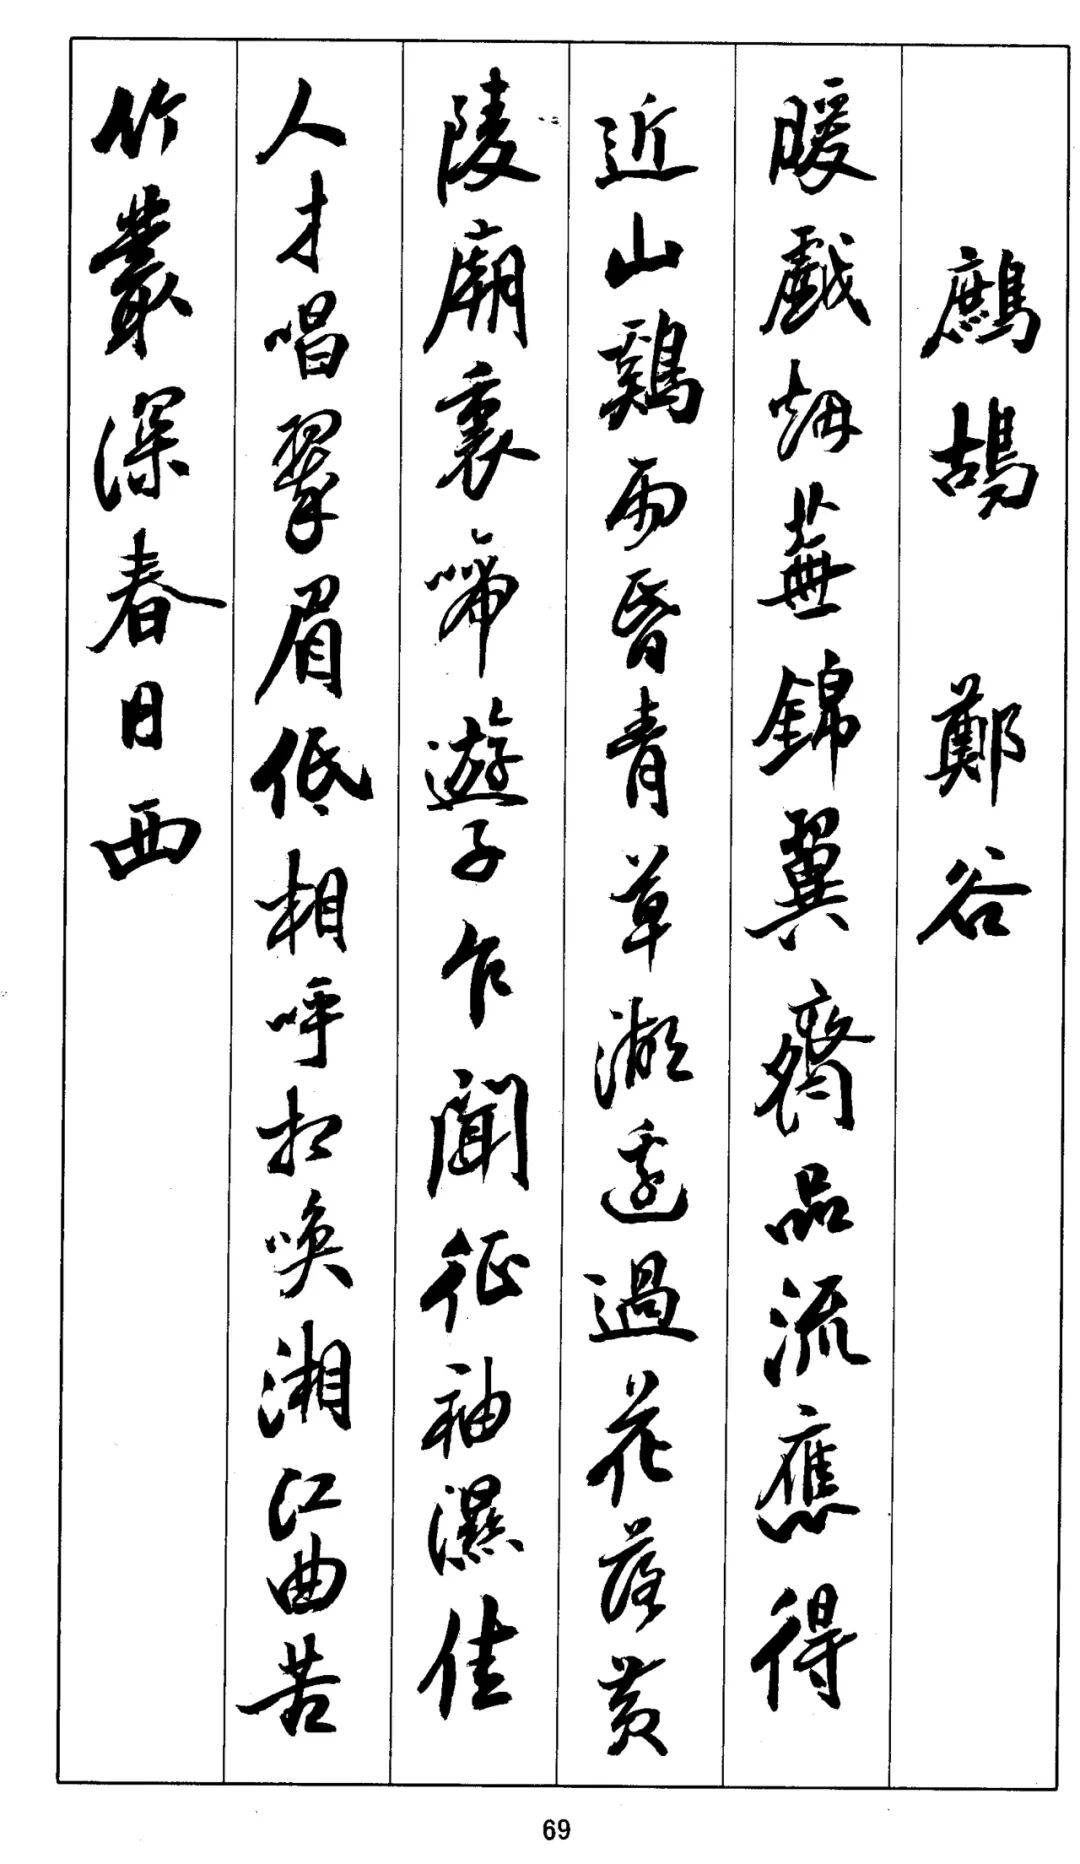 鷓鴣 鄭谷
暖戲烟蕪錦翼齊品流應得
近山鷄雨昏青草湖邊過花落黃
陵廟裏啼遊子乍聞征袖濕佳
人才唱翠眉低相呼相喚湘江曲苦
竹叢深春日西
69